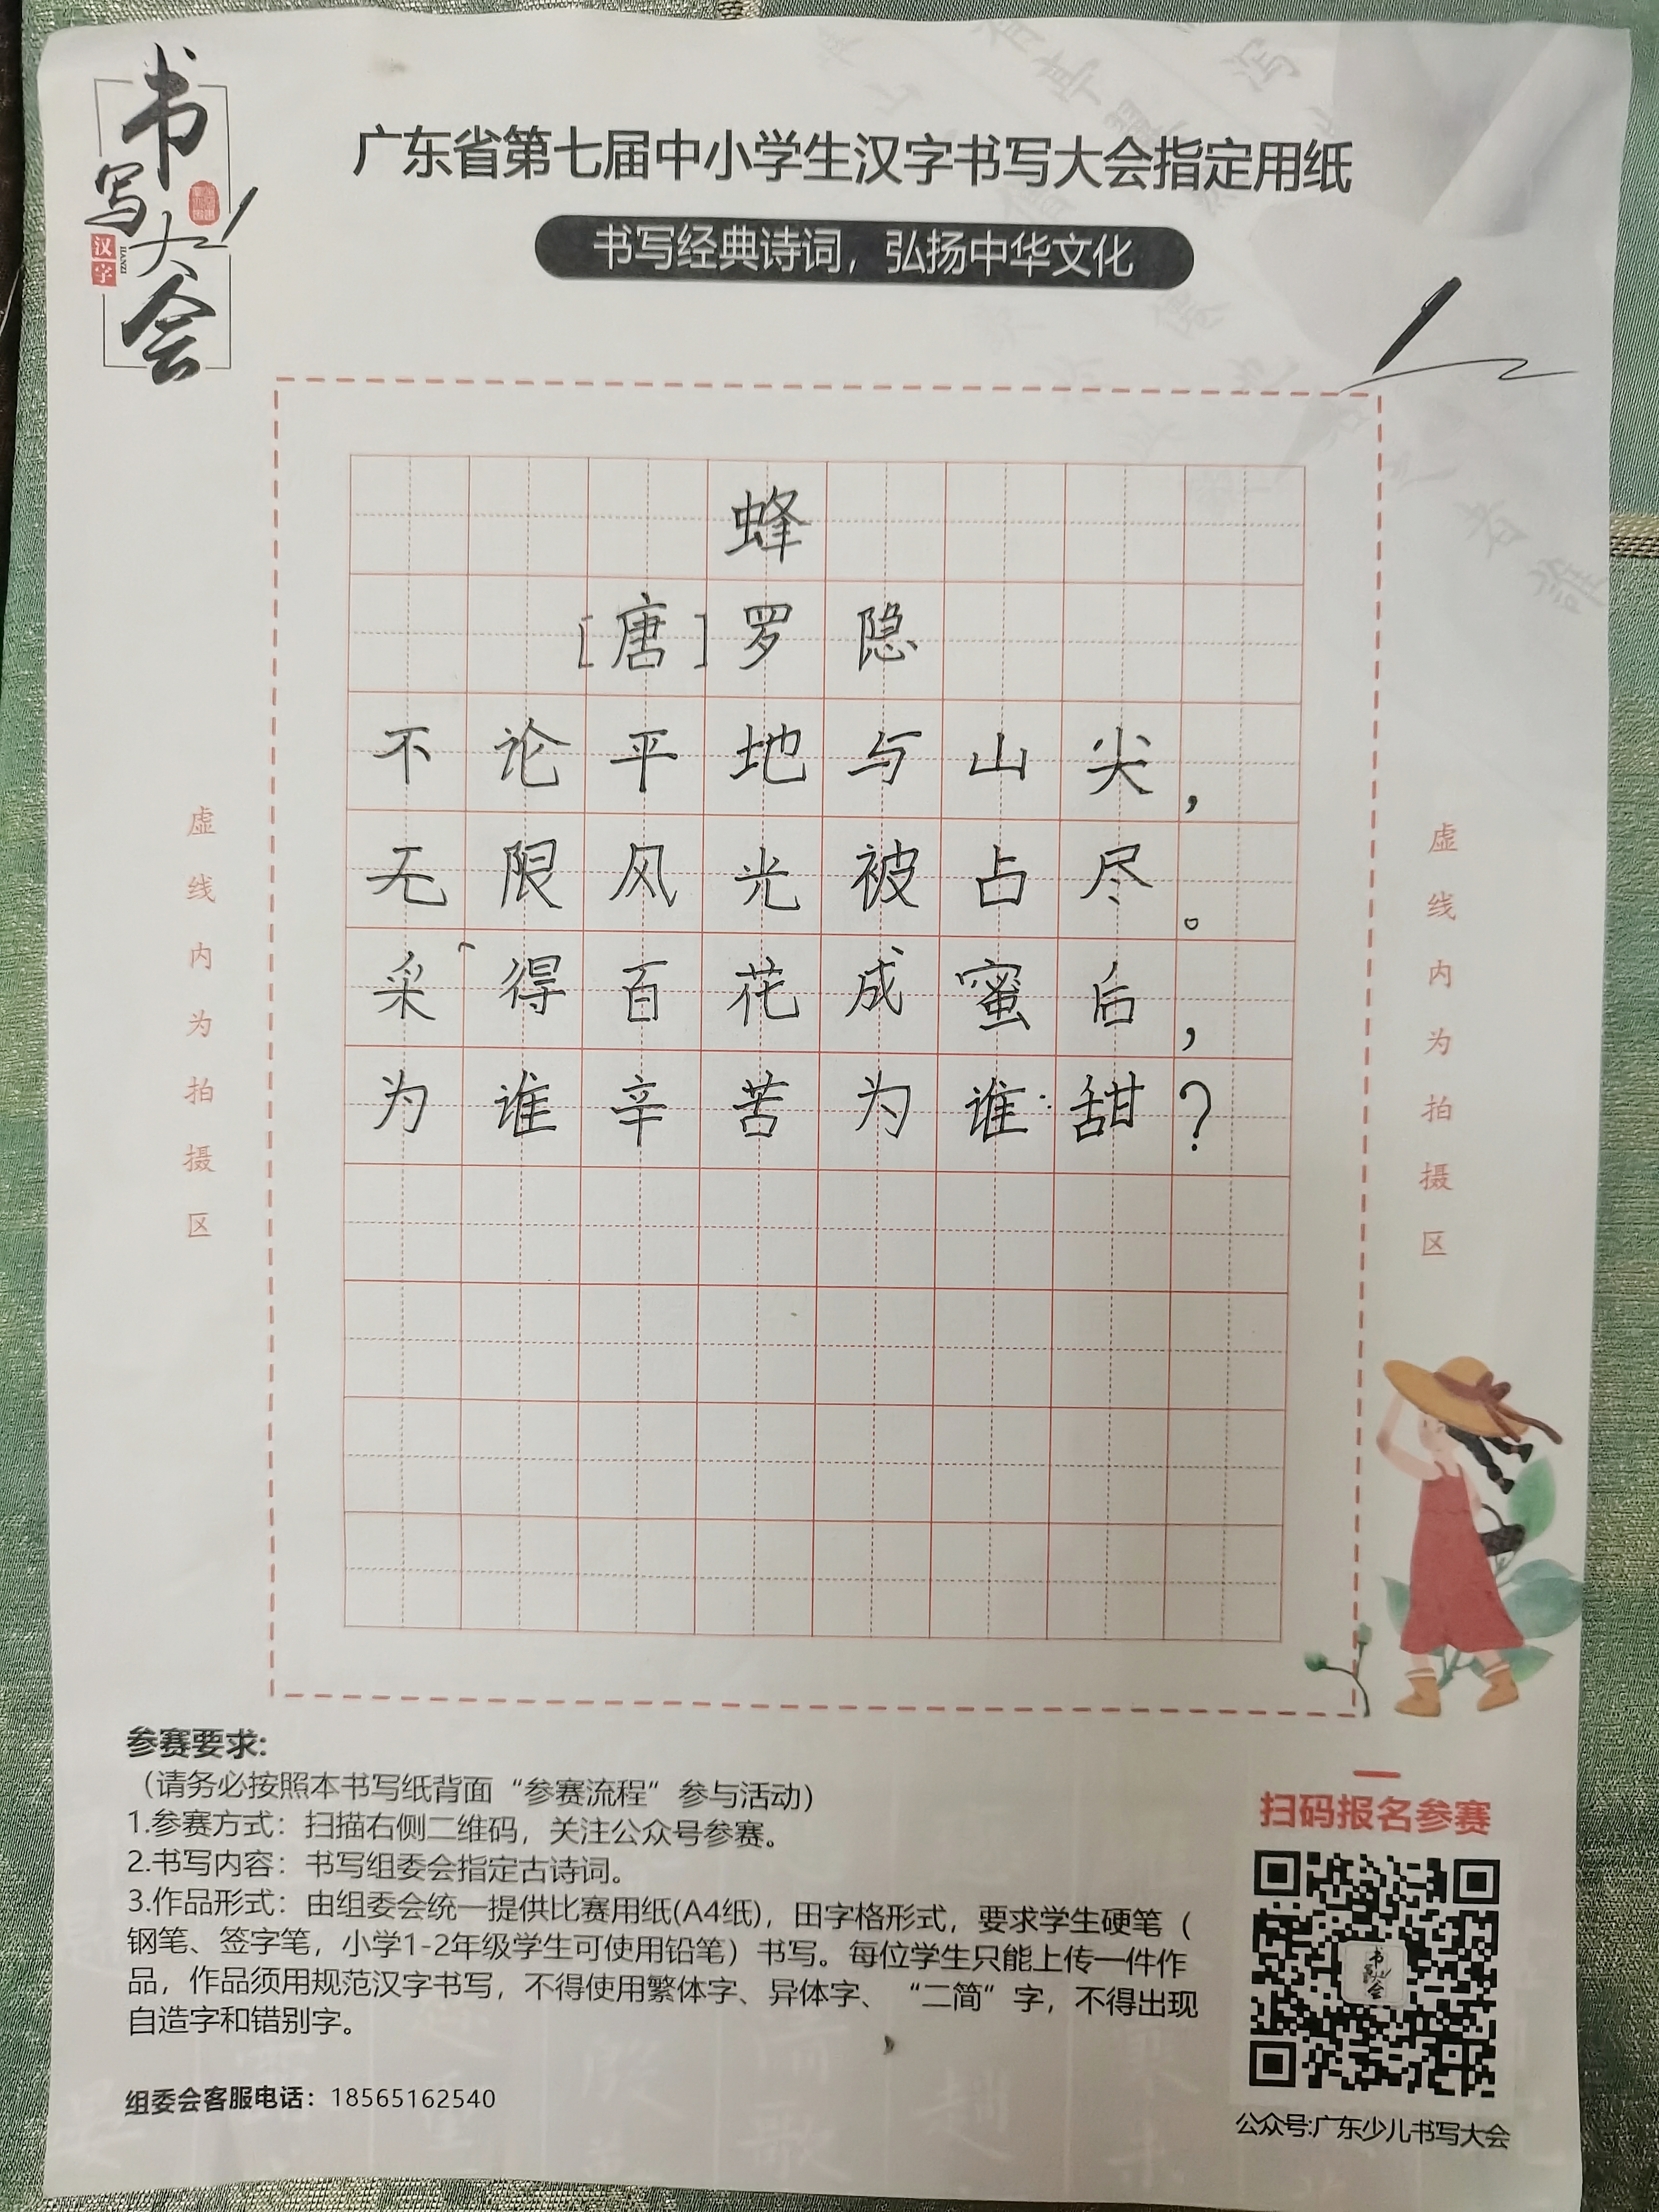 书写大会
汉字
HANZI
广东省第七届中小学生汉字书写大会指定用纸
书写经典诗词，弘扬中华文化
蜂
[唐]罗隐
不论平地与山尖，
无限风光被占尽。
采得百花成蜜后，
为谁辛苦为谁甜？
虚线内为拍摄区
虚线内为拍摄区
参赛要求:
（请务必按照本书写纸背面“参赛流程”参与活动）
1.参赛方式：扫描右侧二维码，关注公众号参赛。
2.书写内容：书写组委会指定古诗词。
3.作品形式：由组委会统一提供比赛用纸(A4纸)，田字格形式，要求学生硬笔（
钢笔、签字笔，小学1-2年级学生可使用铅笔）书写。每位学生只能上传一件作
品，作品须用规范汉字书写，不得使用繁体字、异体字、“二简”字，不得出现
自造字和错别字。
组委会客服电话：18565162540
扫码报名参赛
公众号:广东少儿书写大会